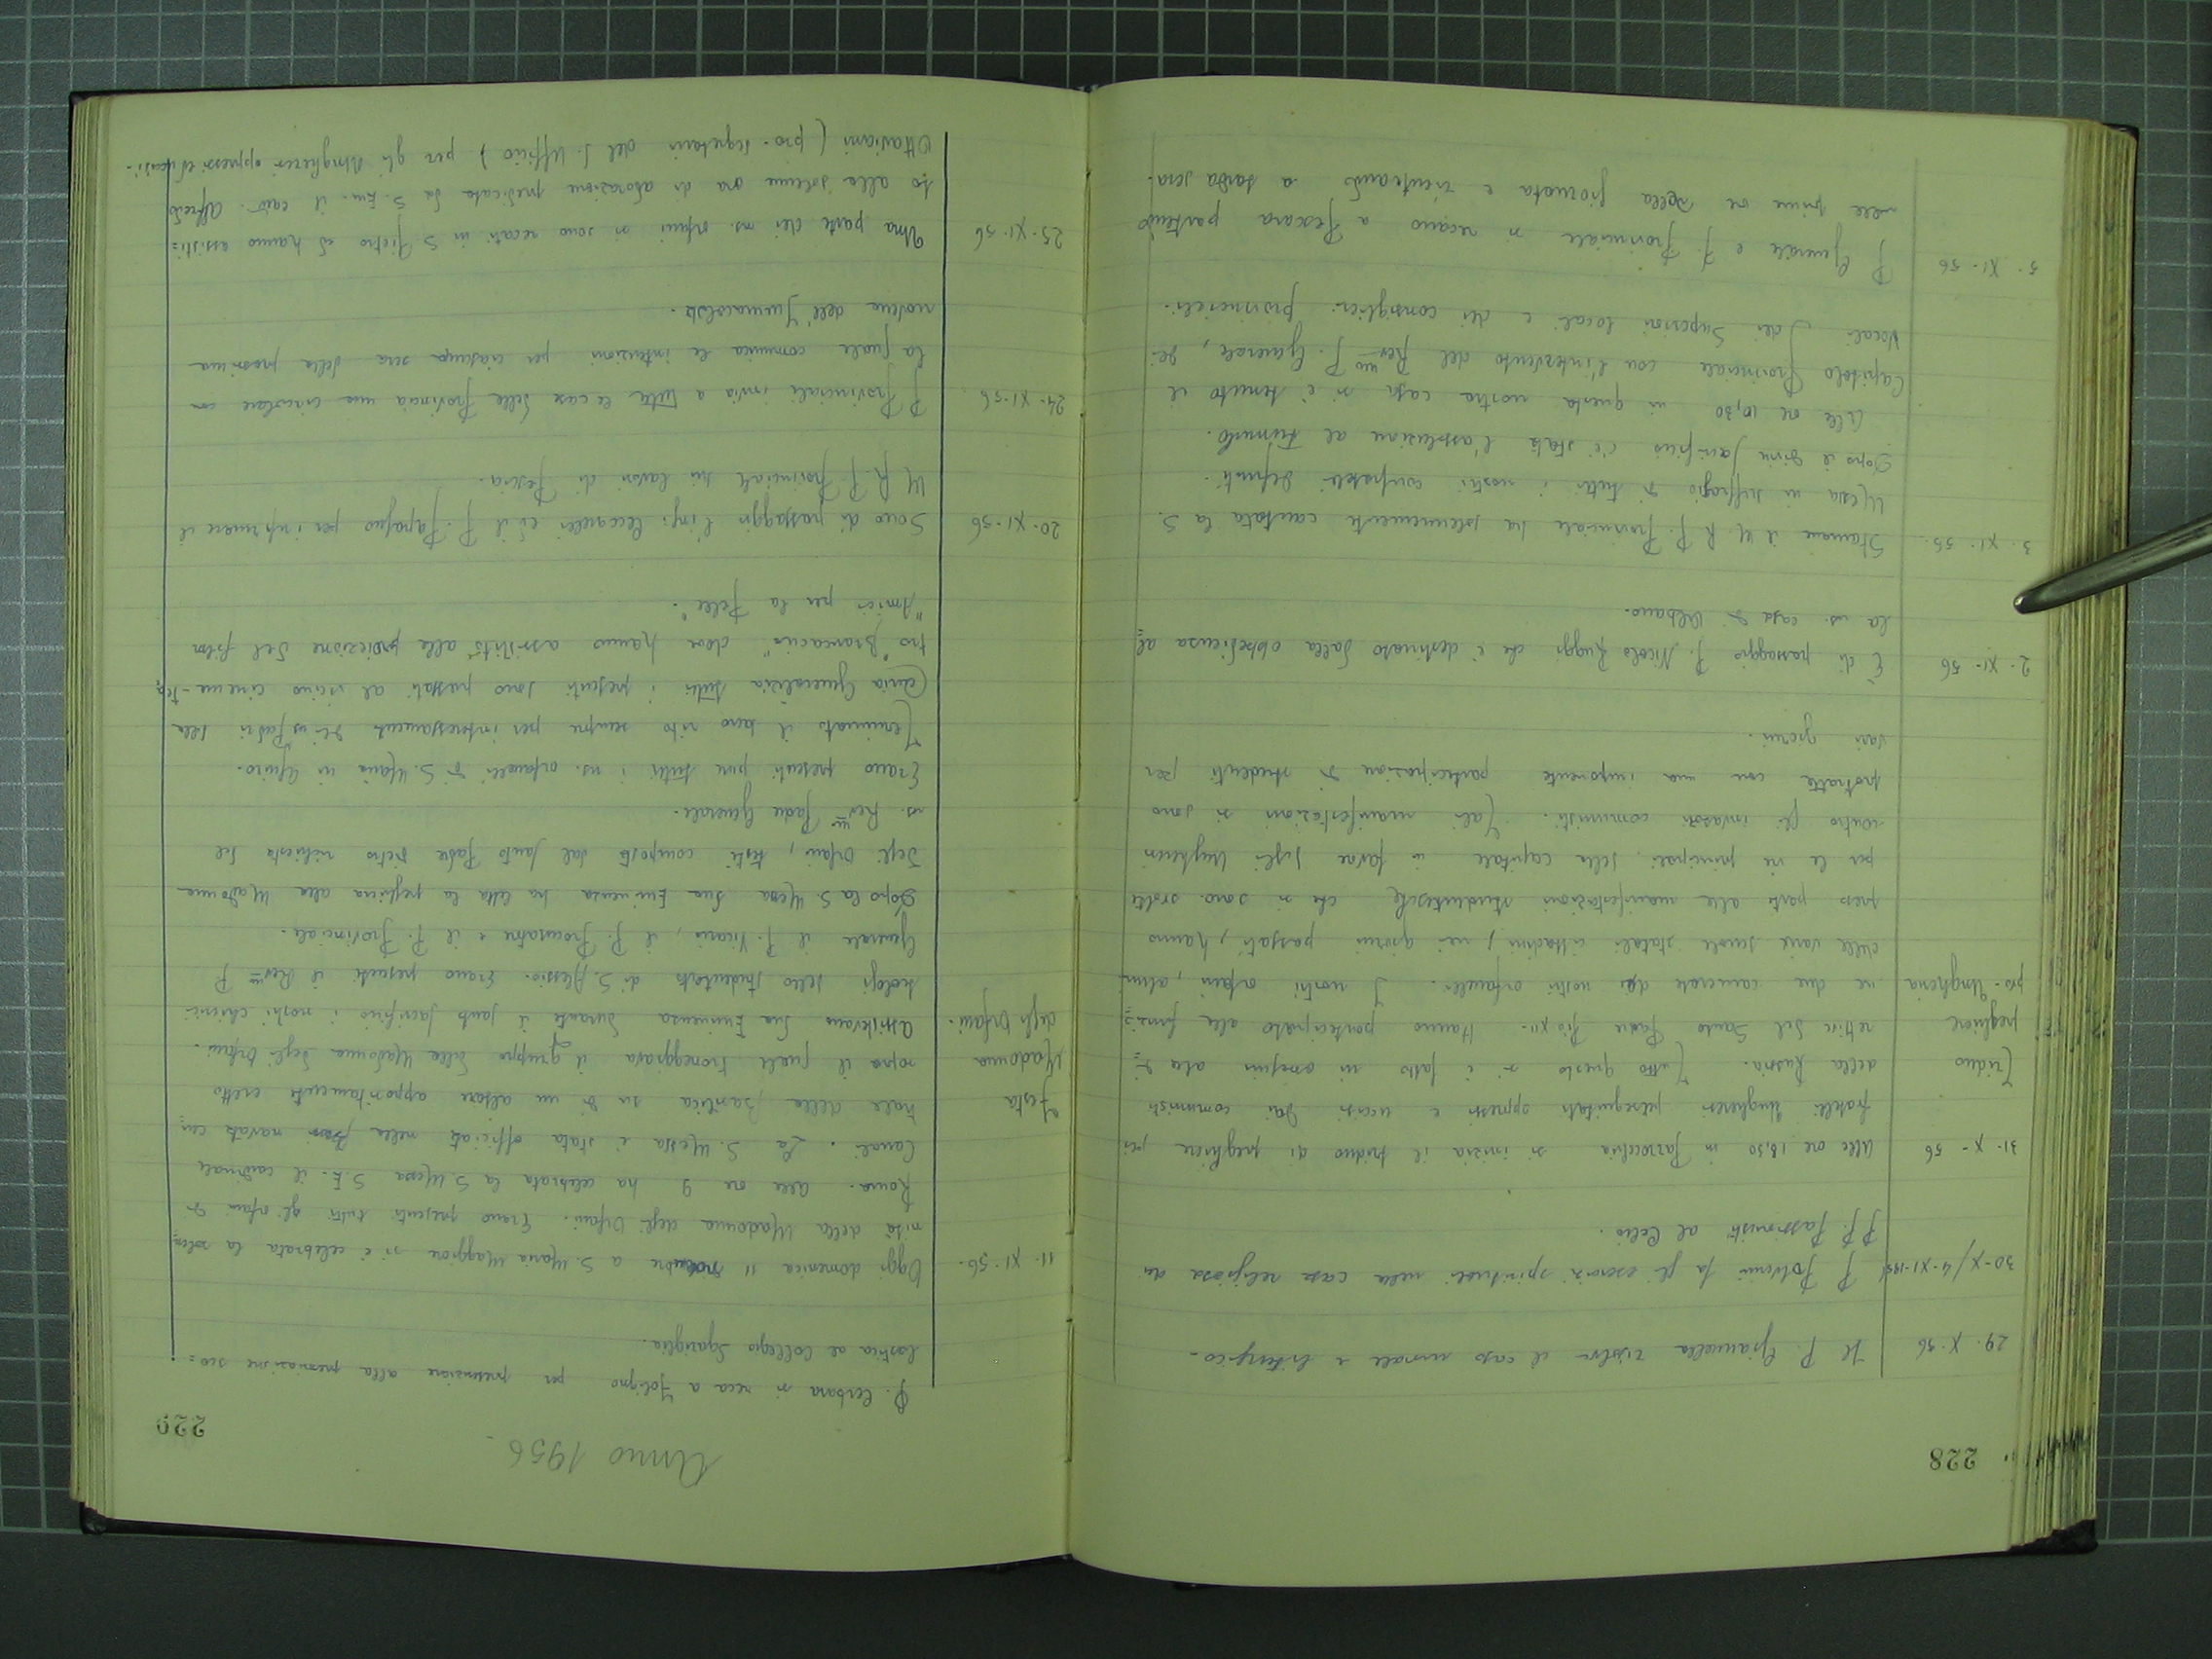 228
29. X. 56 Il P. Gianella risolve il caso morale e liturgico.
30-X/4-XI-1956 P. Polverini fa gli esercizi spirituali nella casa religiosa dei
PP. Passionisti al Celio.
31- X- 56 Alle ore 18,30 in Parrocchia si inizia il triduo di preghiere pei
fratelli Ungheresi perseguitati oppressi e uccisi dai comunisti
Triduo della Russia. Tutto questo si è fatto in ossequio alle di=
preghiere rettive del Santo Padre Pio XII. Hanno partecipato alle funzio=
pro- Ungheria ni due camerate dei nostri orfanelli. I nostri orfani, alun-
ni delle varie scuole statali cittadini, nei giorni passati, hanno
preso parte alle manifestazioni studentesche che si sono svolte
per le vie principali della capitale in favore degli Ungheresi
contro gli invasori comunisti. Tali manifestazioni si sono
protratte con una imponente partecipazione di studenti per
vari giorni.
2- XI- 56 È di passaggio P. Nicolò Ruggi che è destinato dalla obbedienza al=
la ns. casa di Albano.
3. XI. 56. Stamane il M. R. P. Provinciale ha solennemente cantata la S.
Messa in suffragio di tutti i nostri confratelli defunti.
Dopo il divin sacrificio c'è stata l'assoluzione al tumulo.
Alle ore 10,30 in questa nostra casa si è tenuto il
Capitolo Provinciale con l'intervento del Rev.mo P. Generale, dei
Vocali dei Superiori locali e dei consiglieri provinciali.
5. XI- 56 P. Generale e P. Provinciale si recano a Pescara partendo
nelle prime ore della giornata e rientrando a tarda sera.
Anno 1956.
229
P. Cerbara si reca a Foligno per presenziare alla premiazione sco=
lastica al Collegio Sgariglia.
11. XI. 56. Oggi domenica 11 novembre a S. Maria Maggiore si è celebrata la solen=
nità della Madonna degli Orfani. Erano presenti tutti gli orfani di
Roma. Alle ore 9 ha celebrata la S. Messa S. E. il cardinale
Canali. La S. Messa è stata officiata nella navata cen=
Festa trale della Basilica su di un altare appositamente eretto
Madonna sopra il quale troneggiava il gruppo della Madonna degli Orfani.
degli Orfani. Assistevano Sua Eminenza durante il santo Sacrificio i nostri chierici
teologi dello studentato di S. Alessio. Erano presenti il Rev.mo P.
Generale il P. Vicario, il P. Procuratore e il P. Provinciale.
Dopo la S. Messa Sua Eminenza ha letta la preghiera alla Madonna
degli Orfani, testé composta dal Santo Padre dietro richiesta del
ns. Rev.mo Padre Generale.
Erano presenti pure tutti i ns. orfanelli di S. Maria in Aquiro.
Terminato il sacro rito sempre per interessamento dei ns Padri della
Curia Generalizia tutti i presenti sono passati al vicino cinema-tea=
tro "Brancaccio" dove hanno assistito alla proiezione del film
"Amici per la Pelle".
20. XI. 56 Sono di passaggio l'ing: Ceccarelli ed il P. Papagno per informare il
M. R. P. Provinciale sui lavori di Pescia.
24- XI- 56. P. Provinciale invia a tutte le case della Provincia una circolare con
la quale comunica le intenzioni per ciascuna sera della prossima
novena dell'Immacolata.
25. XI. 56 Una parte dei ns. orfani si sono recati in S Pietro ed hanno assisti=
to alla solenne ora di adorazione predicata da S. Em. il card. Alfredo
Ottaviani (pro-segretario del S. Uffizio) per gli Ungheresi oppressi ed uccisi.